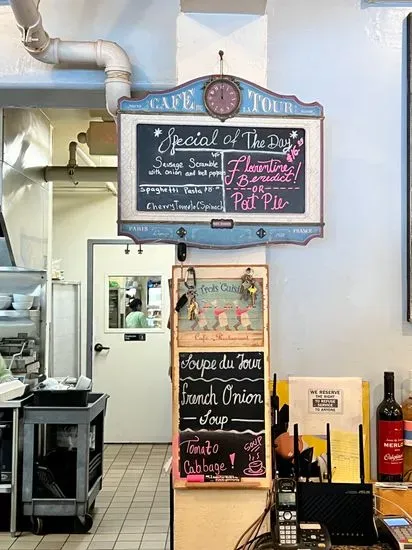 CAFÉ LA TOUR
Special of The Day
Sausage Scramble
with onion and bell pepper
Spaghetti Pasta
Cherry Tomato &Spinach
Florentine
Benedict!
OR
Pot Pie
PARIS
FRANCE
Trois Cuisi
Cafe Restaurant
Soupe du Jour
French Onion
Soup
Tomato
Cabbage!
SOUP
WE RESERVE
THE RIGHT
TO REFUSE
SERVICE
TO ANYONE
MERLOT